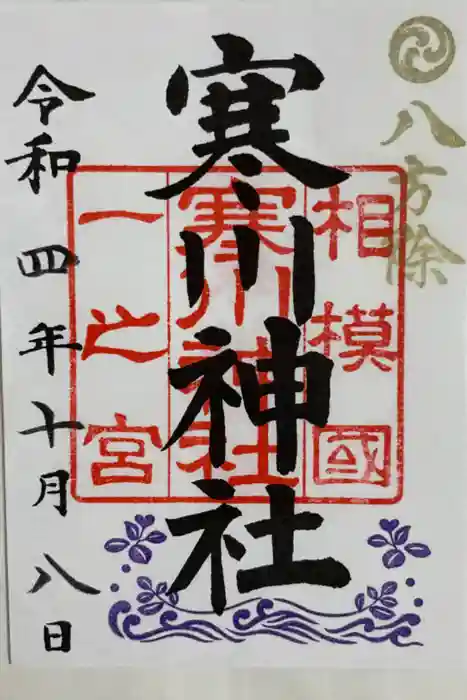 八方除
相模國
寒川神社
一之宮
寒川神社
令和四年十月八日